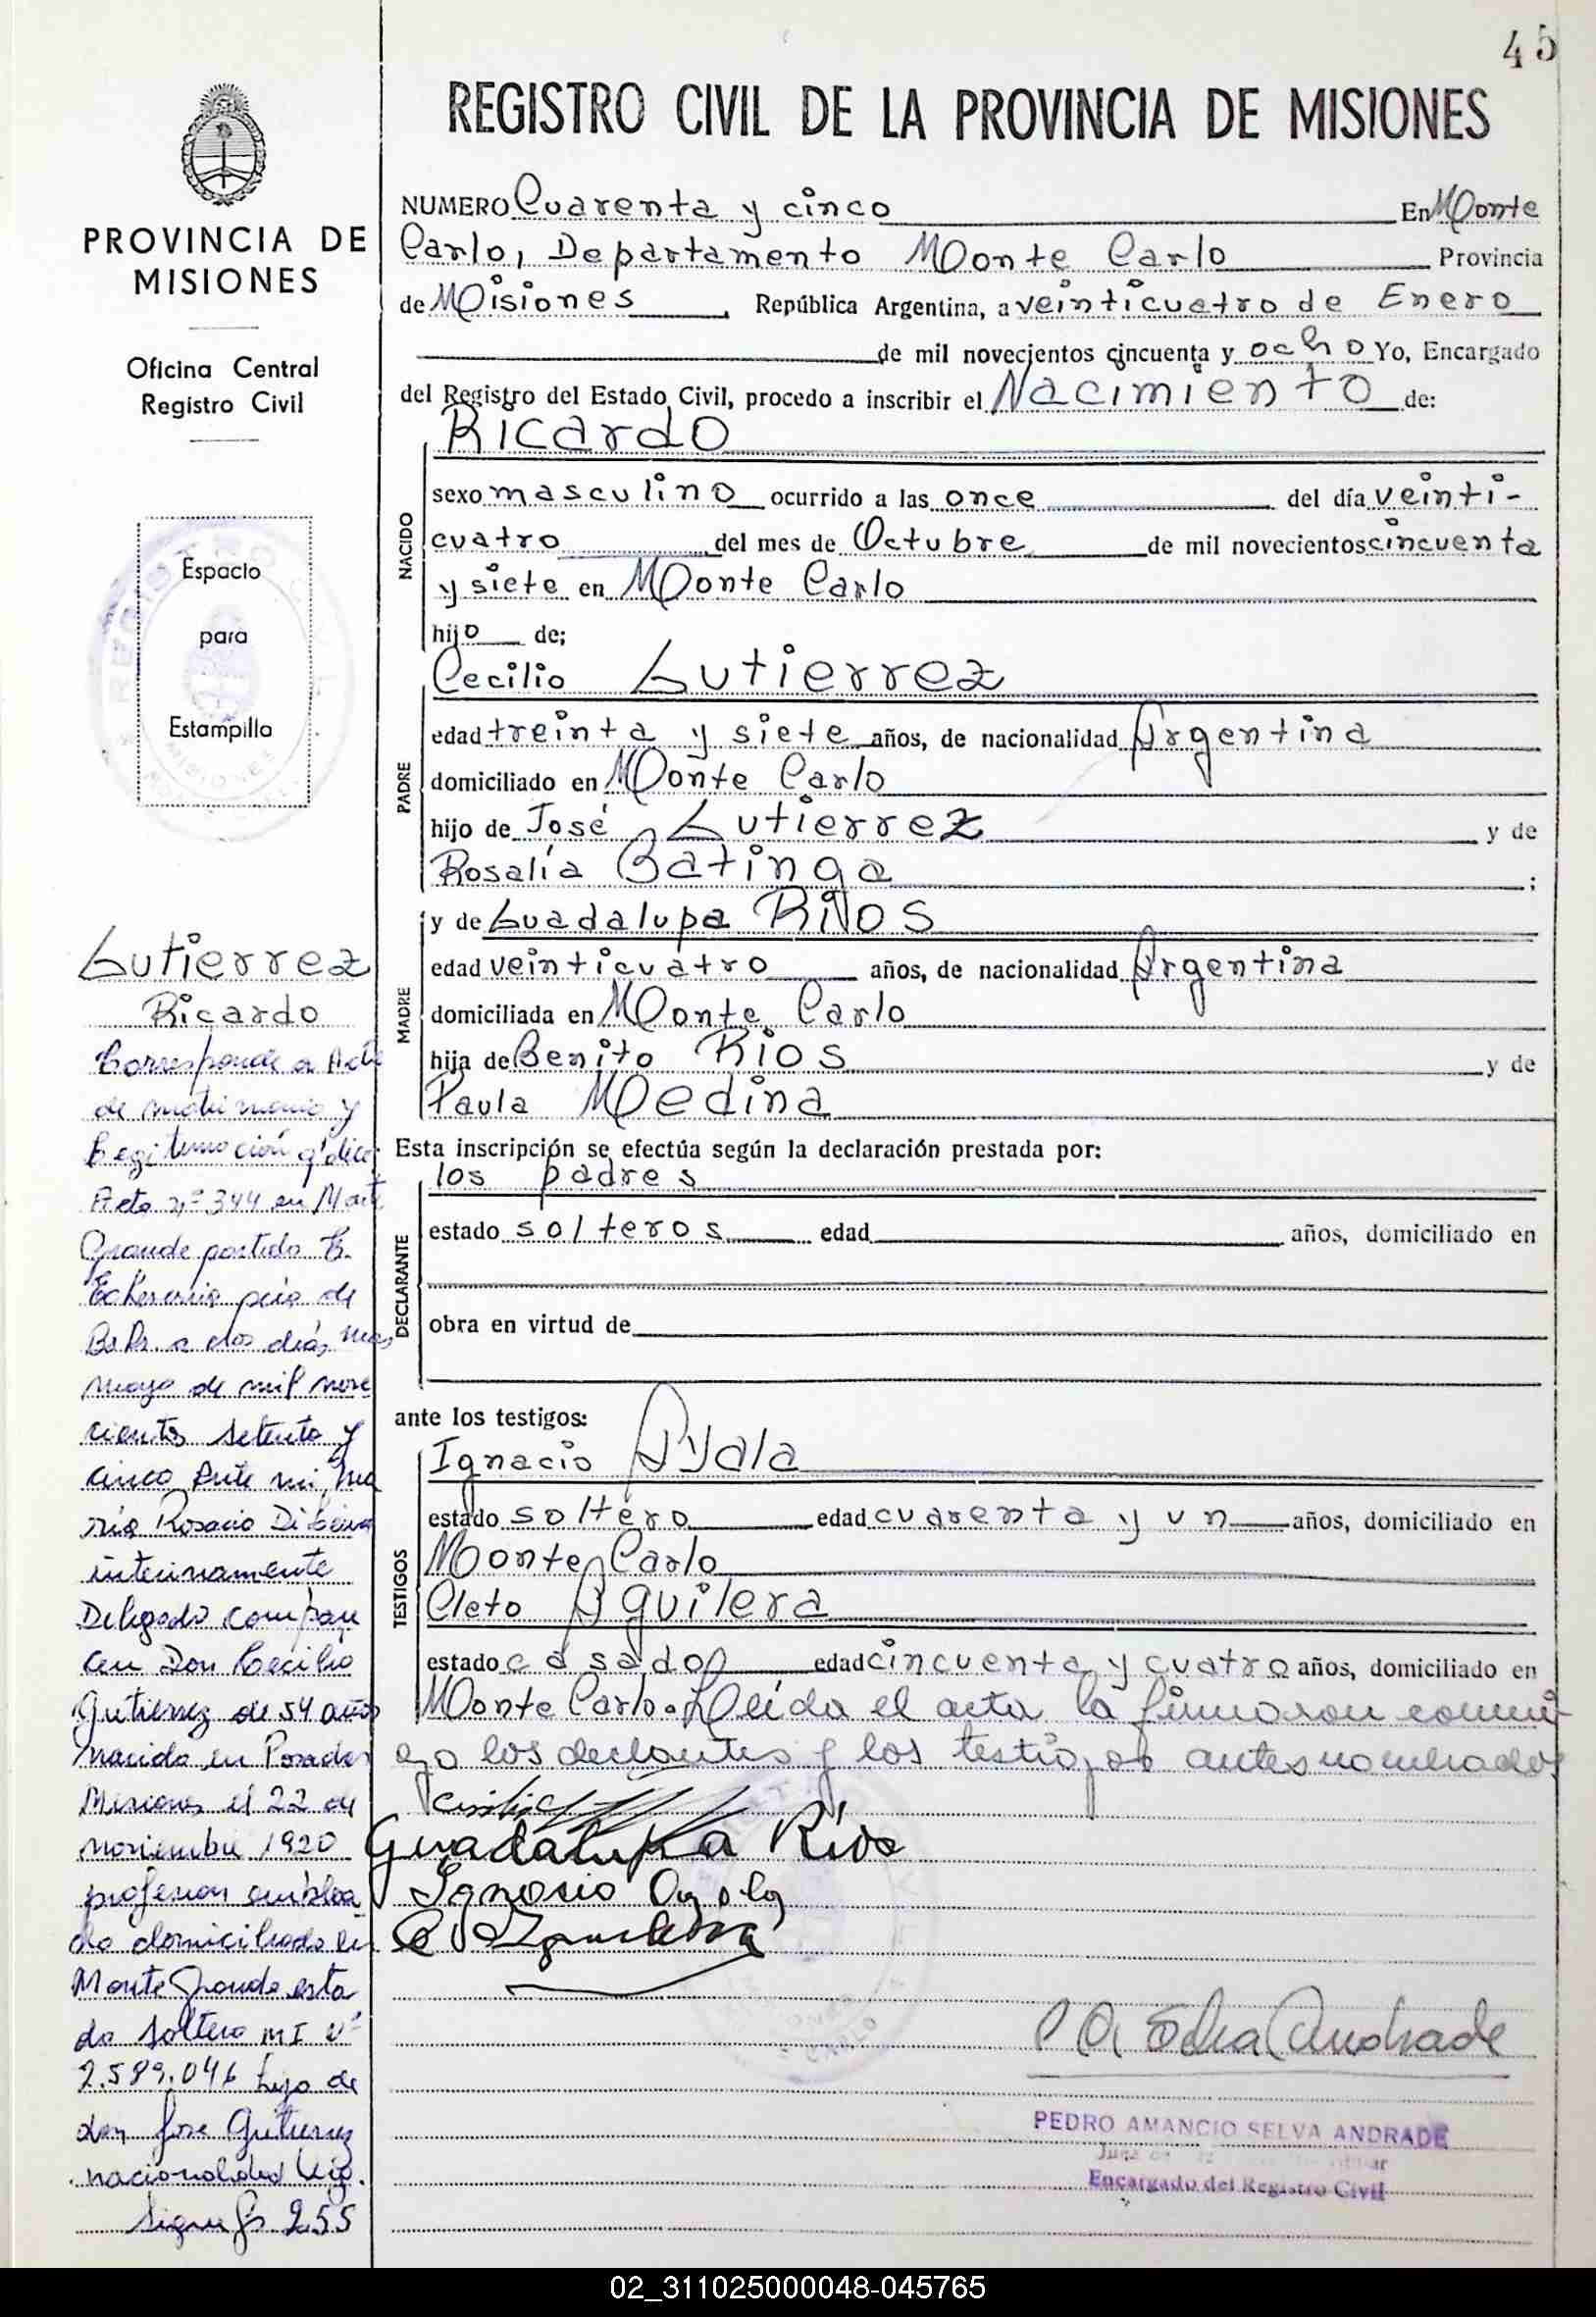 45
REGISTRO CIVIL DE LA PROVINCIA DE MISIONES
PROVINCIA DE
MISIONES
Oficina Central
Registro Civil
Espacio
para
Estampilla
NUMERO Cuarenta y cinco En Monte
Carlo, Departamento Monte Carlo Provincia
de Misiones, República Argentina, a veinticuatro de Enero
de mil novecientos cincuenta y ocho Yo, Encargado
del Registro del Estado Civil, procedo a inscribir el Nacimiento de:
Ricardo
NACIDO
sexo masculino ocurrido a las once del día veinti-
cuatro del mes de Octubre de mil novecientos cincuenta
y siete en Monte Carlo
hijo de;
Cecilio Gutierrez
PADRE
edad treinta y siete años, de nacionalidad Argentina
domiciliado en Monte Carlo
hijo de José Gutierrez y de
Rosalía Batinga;
y de Guadalupa Rios
MADRE
edad veinticuatro años, de nacionalidad Argentina
domiciliada en Monte Carlo
hija de Benito Rios y de
Paula Medina
Esta inscripción se efectúa según la declaración prestada por:
los padres
DECLARANTE
estado solteros edad años, domiciliado en
obra en virtud de
ante los testigos:
Ignacio Ayala
TESTIGOS
estado soltero edad cuarenta y un años, domiciliado en
Monte Carlo
Cleto Aguilera
estado casado edad cincuenta y cuatro años, domiciliado en
Monte Carlo. Leida el acta la firmaron conmi
go los declantes y los testigos antes nombrados
Guadalupa Rios
Ignosio Ayala
PEDRO AMANCIO SELVA ANDRADE
Encargado del Registro Civil
Gutierrez
Ricardo
Corresponde a Acta
de matrimonio y
Legitimación q' dice:
Acta nº 344 en Monte
Grande partido E.
Echeverria pcia de
Bs As. a dos días, mes
mayo de mil nove
cientos setenta y
cinco Ante mi, Ma
ría Rosario
interinamente
Delegado compare
cen Don Cecilio
Gutierrez de 54 años
nacido en Posadas
Misiones el 22 de
noviembre 1920
profesion emplea
do domiciliado en
Monte Grande esta
do soltero MI nº
2.589.046 hijo de
don Jose Gutierrez
nacionalidad
Sigue fs 255
02_311025000048-045765